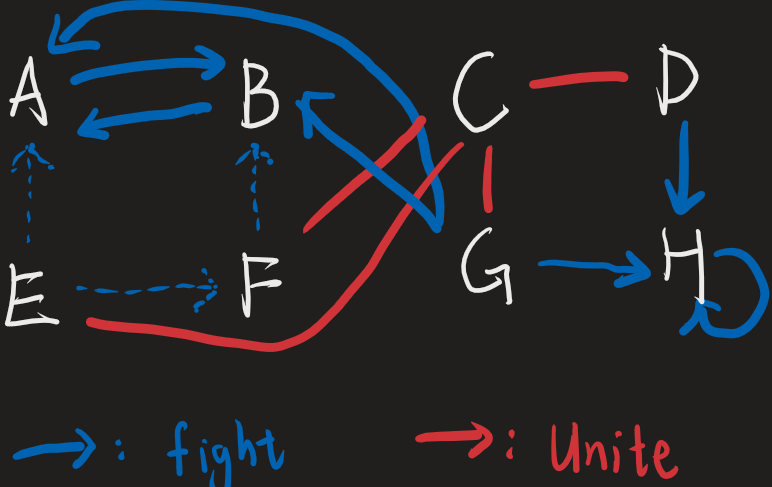 A B C D
E F G H
: fight : Unite